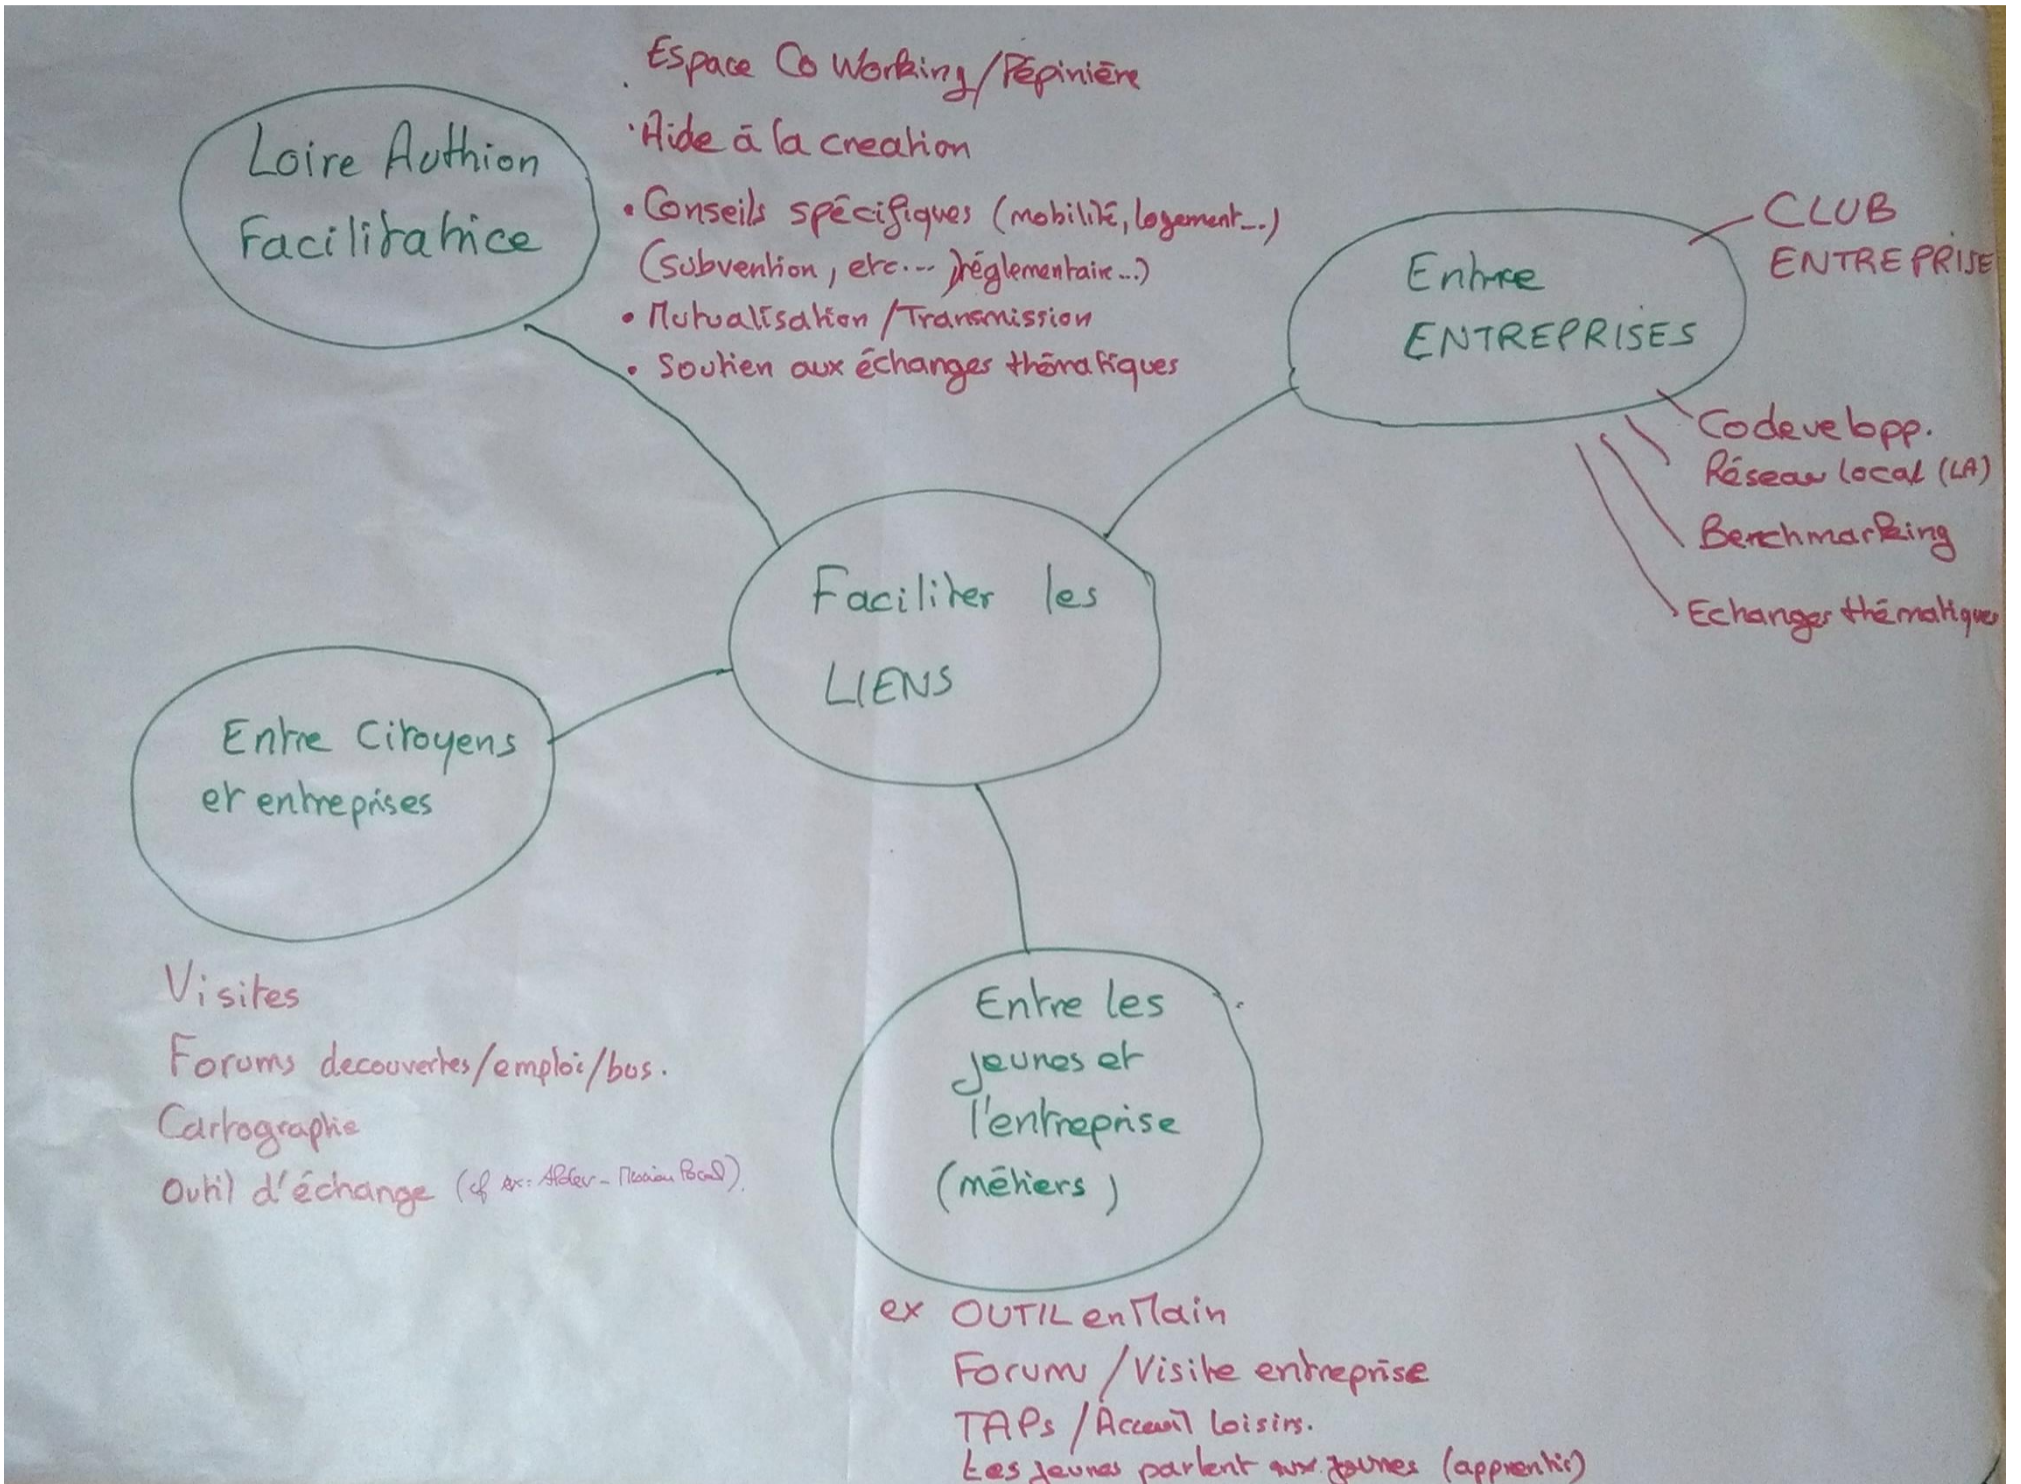 Loire Authion
Facilitatrice
. Espace Co Working/Pépinière
· Aide à la creation
• Conseils spécifiques (mobilité, logement...)
(subvention, etc... )réglementaire...)
• Mutualisation / Transmission
• Soutien aux échanges thématiques
Entre
ENTREPRISES
CLUB
ENTREPRISE
Codevelopp.
Réseau local (LA)
Benchmarking
Echanges thématiques
Faciliter les
LIENS
Entre Citoyens
et entreprises
Visites
Forums decouvertes/emploi/bus.
Cartographie
Outil d'échange (cf ex: Aldev - Mission Local).
Entre les
jeunes et
l'entreprise
(métiers)
ex OUTIL en Main
Forum / Visite entreprise
TAPs / Acceuil loisirs.
Les jeunes parlent aux jeunes (apprentis)